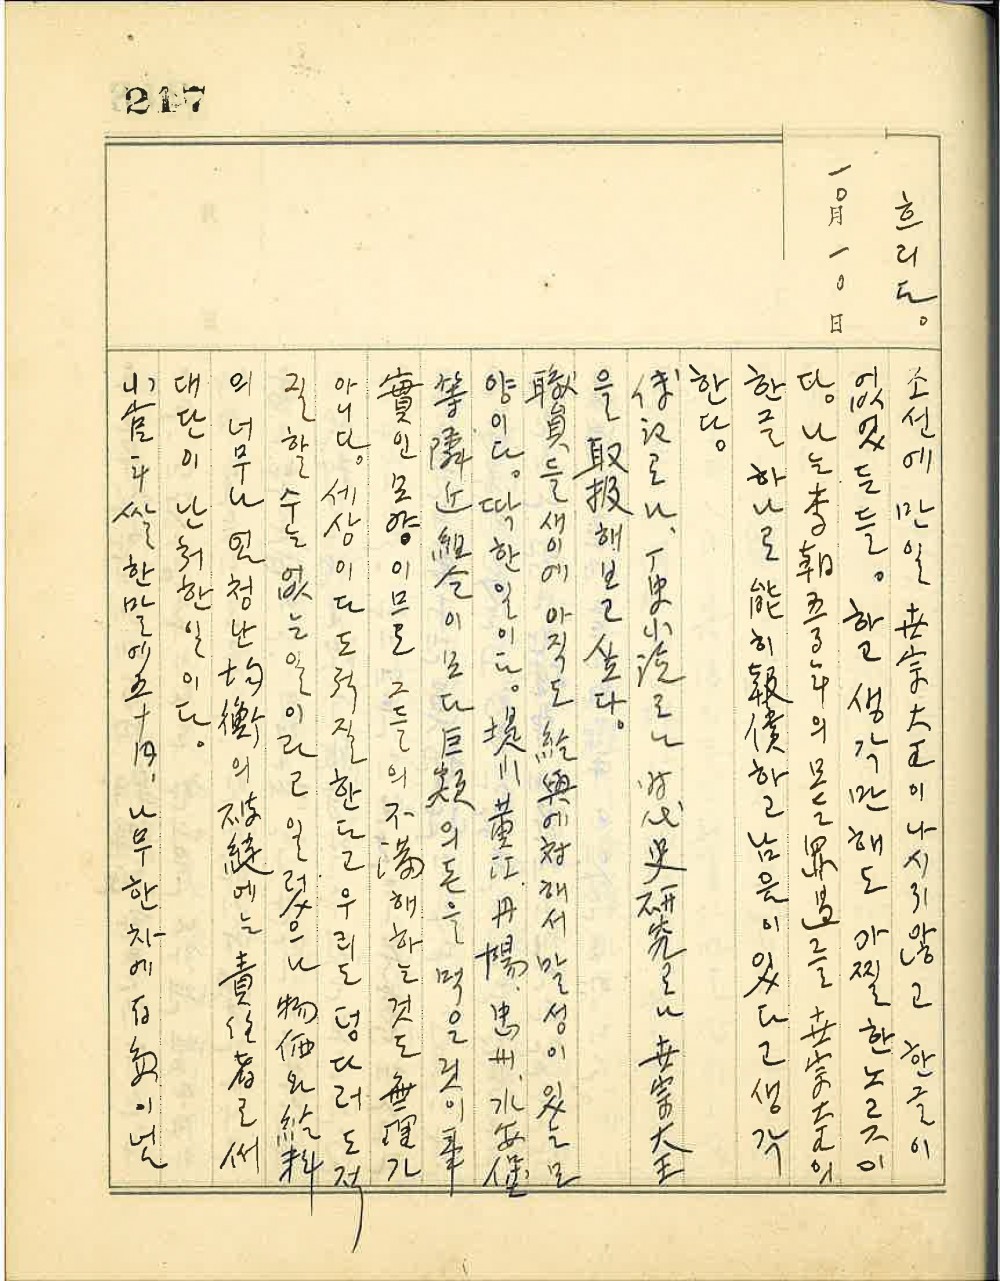 217
흐리다。
一〇月 一〇日
소선에 만일 世宗大王이 나시지 않고 한글이
없었든들。 하고 생각만 해도 아찔한 노릇이
다. 나는 李朝五百年의 모든 罪過를 世宗大王의
한글 하나로 能히 報償하고 남음이 있다고 생각
한다.
傳記로나、 歷史小說로나 時代史硏究로나 世宗大王
을 取扱해보고 싶다。
職員들 새이에 아직도 給與에 対해서 말성이 있는 모
양이다。 딱한 일이다。 堤川 董江、丹陽、忠州、水安堡
等 隣近組合이 모다 巨額의 돈을 먹은 것이 事
實인 모양이므로 그들의 不滿해 하는 것도 無理가
아니다. 세상이 다 도적질 한다고 우리도 덩다러 도적
질 할 수는 없는 일이라고 일렀으나 物価와 給料
의 너무나 엄청난 均衡의 破綻에는 責任者로써
대단이 난처한 일이다。
小官斗 쌀 한말에 五十円、 나무 한 차에 百 이 넘